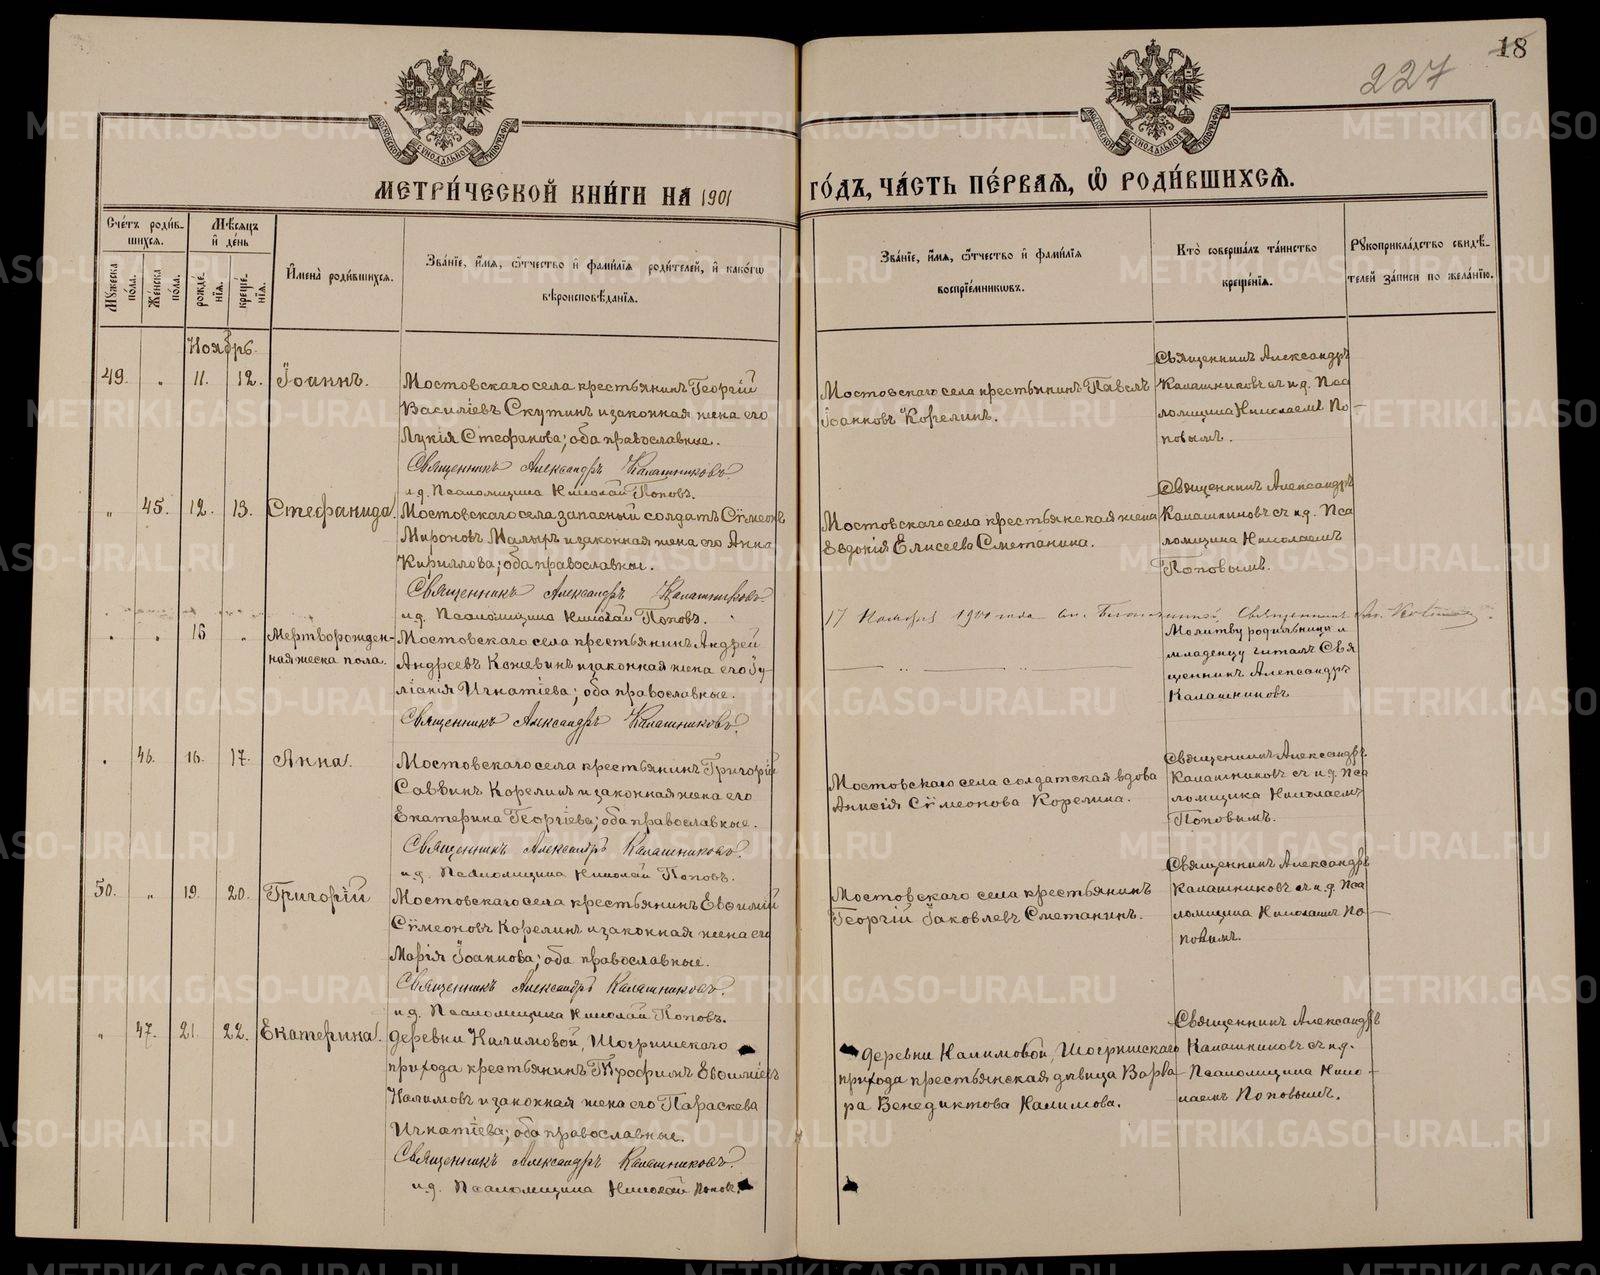 18
227
МЕТРИ́ЧЕСКОЙ КНИ́ГИ НА 1901
ГО́ДЪ, ЧА́СТЬ ПЕ́РВАЯ, Ѡ҆ РОДИ́ВШИХСЯ.
Сче́тъ роди́в-
шихся.
Мꙋ́жеска по́ла.
Же́нска по́ла.
Мѣ́сяцъ и҆ де́нь
рожде́нїя.
креще́нїя.
И҆мена̀ роди́вшихся.
Зва́нїе, и҆́мя, ѻ҆́тчество и҆ фами́лїя роди́телей, и҆ како́гѡ
вѣроисповѣ́данїя.
Зва́нїе, и҆́мя, ѻ҆́тчество и҆ фами́лїя
воспрїе́мникѡвъ.
Кто̀ соверша́лъ та́инство
креще́нїя.
Рꙋкоприкла́дство свидѣ́-
телей за́писи по жела́нїю.
Ноябрь.
49. „ 11. 12. Іоаннъ.
Мостовскаго села крестьянинъ Георгій
Василіевъ Скутинъ и законная жена его
Лукія Стефанова; оба православные.
Священникъ Александръ Калашниковъ.
и.д. Псаломщика Николай Поповъ.
Мостовскаго села крестьянинъ Павелъ
Іоанновъ Корелинъ.
Священникъ Александръ
Калашниковъ съ и.д. Пса
ломщика Николаемъ По-
повымъ.
„ 45. 12. 13. Стефанида.
Мостовскаго села запасный солдатъ Сѵмеонъ
Мироновъ Малыхъ и законная жена его Анна
Кириллова; оба православные.
Священникъ Александръ Калашниковъ.
и.д. Псаломщика Николай Поповъ.
Мостовскаго села крестьянская жена
Евдокія Елисеева Сметанина.
Священникъ Александръ
Калашниковъ съ и.д. Пса
ломщика Николаемъ
Поповымъ.
17 Ноября 1901 года Священникъ
„ „ 16 „ Мертворожден-
ная жеска пола.
Мостовскаго села крестьянинъ Андрей
Андреевъ Кожевинъ и законная жена его Іу-
ліанія Игнатіева; оба православные.
Священникъ Александръ Калашниковъ.
Молитву родильницѣ и
младенцу читалъ Свя
щенникъ Александръ
Калашниковъ
„ 46. 16. 17. Анна.
Мостовскаго села крестьянинъ Григорій
Саввинъ Корелинъ и законная жена его
Екатерина Георгіева; оба православные.
Священникъ Александръ Калашниковъ.
и.д. Псаломщика Николай Поповъ.
Мостовскаго села солдатская вдова
Анисія Сѵмеонова Корелина.
Священникъ Александръ
Калашниковъ съ и.д. Пса
ломщика Николаемъ
Поповымъ.
50. „ 19. 20. Григорій
Мостовскаго села крестьянинъ Евѳимій
Сѵмеоновъ Корелинъ и законная жена его
Марія Іоаннова; оба православные.
Священникъ Александръ Калашниковъ.
и.д. Псаломщика Николай Поповъ.
Мостовскаго села крестьянинъ
Георгій Іаковлевъ Сметанинъ.
Священникъ Александръ
Калашниковъ съ и.д. Пса
ломщика Николаемъ По-
повымъ.
„ 47. 21. 22. Екатерина.
деревни Налимовой, Шогришскаго
прихода крестьянинъ Трофимъ Евѳиміевъ
Налимовъ и законная жена его Параскева
Игнатіева; оба православные.
Священникъ Александръ Калашниковъ.
и.д. Псаломщика Николай Поповъ.
деревни Налимовой, Шогришскаго
прихода крестьянская дѣвица Варва-
ра Венедиктова Налимова.
Священникъ Александръ
Калашниковъ съ и.д.
Псаломщика Нико-
лаемъ Поповымъ.
METRIKI.GASO-URAL.RU